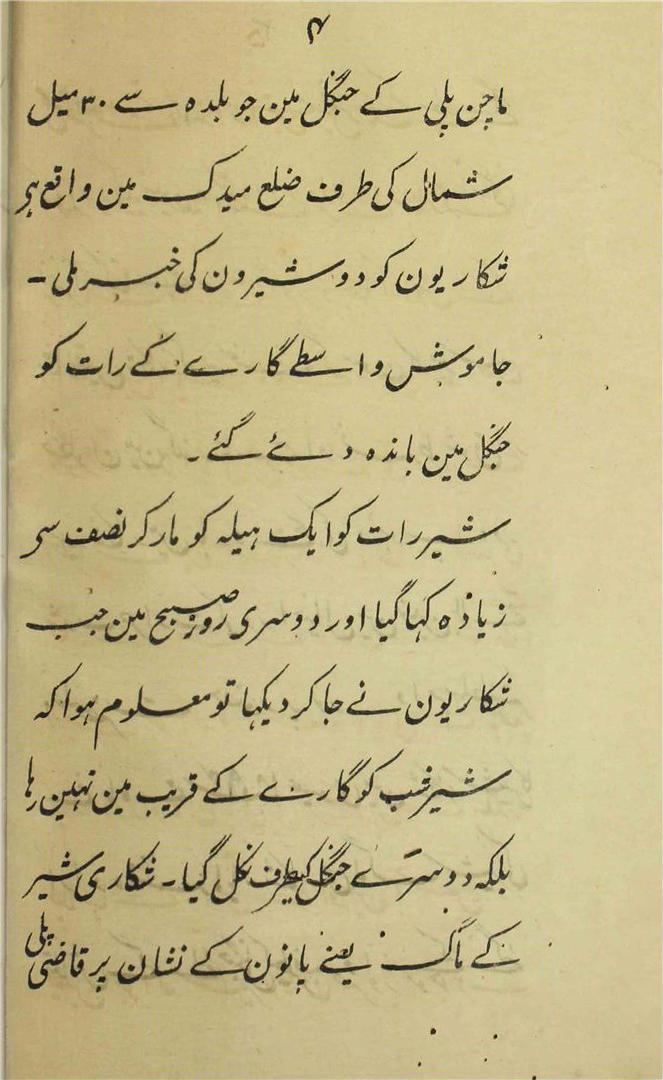 ۴
ماچن پلی کے جنگل مین جو بلدہ سے ۳۰ میل
شمال کی طرف ضلع میدک مین واقع ہی
شکاریون کو دو شیرون کی خبر ملی -
جاموش واسطے گارے کے رات کو
جنگل مین باندہ دۓ گئے -
شیر رات کو ایک ہیلہ کو مار کر نصف سی
زیادہ کہا گیا اور دوسری روز صبح مین جب
شکاریون نے جا کر دیکہا تو معلوم ہوا کہ
شیر شب کو گارے کے قریب مین نہین رہا
بلکہ دوسرے جنگل کیطرف نکل گیا - شکاری شیر
کے ماگ یعنے پانون کے نشان پر قاضی پلی